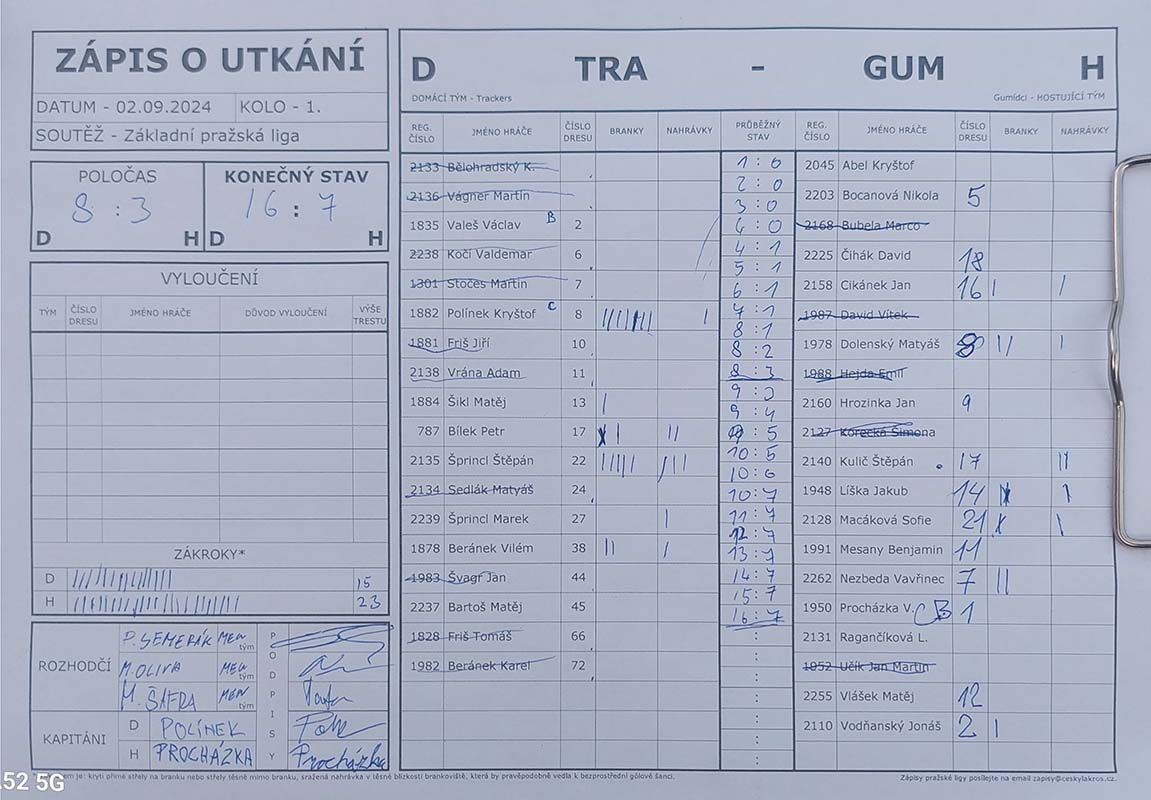 ZÁPIS O UTKÁNÍ
DATUM - 02.09.2024 KOLO - 1.
SOUTĚŽ - Základní pražská liga
POLOČAS KONEČNÝ STAV
8 : 3 16 : 7
D H D H
VYLOUČENÍ
TÝM ČÍSLO DRESU JMÉNO HRÁČE DŮVOD VYLOUČENÍ VÝŠE TRESTU
ZÁKROKY*
D 15
H 23
ROZHODČÍ P. SEMERÁK MEN tým
M. OLIVA MEN tým
M. ŠAFRA MEN tým
PODPISY
KAPITÁNI D POLÍNEK
H PROCHÁZKA Procházka
D TRA - GUM H
DOMÁCÍ TÝM - Trackers Gumídci - HOSTUJÍCÍ TÝM
REG. ČÍSLO JMÉNO HRÁČE ČÍSLO DRESU BRANKY NAHRÁVKY PRŮBĚŽNÝ STAV REG. ČÍSLO JMÉNO HRÁČE ČÍSLO DRESU BRANKY NAHRÁVKY
2133 Bělohradský K.
2136 Vágner Martin
1835 Valeš Václav B 2
2238 Kočí Valdemar 6
1301 Stočes Martin 7
1882 Polínek Kryštof C 8
1881 Friš Jiří 10
2138 Vrána Adam 11
1884 Šikl Matěj 13
787 Bílek Petr 17
2135 Šprincl Štěpán 22
2134 Sedlák Matyáš 24
2239 Šprincl Marek 27
1878 Beránek Vilém 38
1983 Švagr Jan 44
2237 Bartoš Matěj 45
1828 Friš Tomáš 66
1982 Beránek Karel 72
1 : 0
2 : 0
3 : 0
4 : 0
4 : 1
5 : 1
6 : 1
7 : 1
8 : 1
8 : 2
8 : 3
9 : 3
9 : 4
: 5
10 : 5
10 : 6
10 : 7
11 : 7
12 : 7
13 : 7
14 : 7
15 : 7
16 : 7
2045 Abel Kryštof
2203 Bocanová Nikola 5
2168 Bubela Marco
2225 Čihák David 18
2158 Cikánek Jan 16
1987 David Vítek
1978 Dolenský Matyáš 8
1988 Hejda Emil
2160 Hrozinka Jan 9
2127 Korecká Simona
2140 Kulič Štěpán 17
1948 Líška Jakub 14
2128 Macáková Sofie 21
1991 Mesany Benjamin 11
2262 Nezbeda Vavřinec 7
1950 Procházka V. C B 1
2131 Ragančíková L.
1952 Učík Jan Martin
2255 Vlášek Matěj 12
2110 Vodňanský Jonáš 2
em je: krytí přímé střely na branku nebo střely těsně mimo branku, sražená nahrávka v těsné blízkosti brankoviště, která by pravděpodobně vedla k bezprostřední gólové šanci.
Zápisy pražské ligy posílejte na email zapisy@ceskylakros.cz.
.52 5G